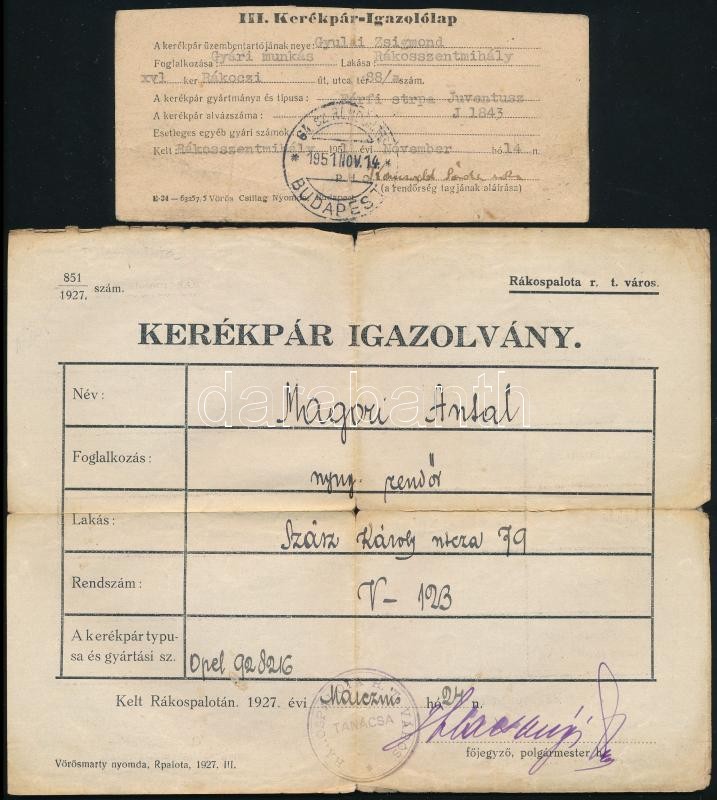 III. Kerékpár-Igazolólap
A kerékpár üzembentartójának neve: Gyulai Zsigmond
Foglalkozása: Gyári munkás Lakása: Rákosszentmihály
XVI. ker Rákoczi út, utca, tér 88/a szám.
A kerékpár gyártmánya és típusa: Férfi strpa Juventusz
A kerékpár alvázszáma: J 1843
Esetleges egyéb gyári számok
Kelt Rákosszentmihály 1951 évi November hó 14 n.
1951 NOV. 14.
BUDAPEST
P. H.
(a rendőrség tagjának aláírása)
E-24 — 63257,5 Vörös Csillag Nyomda, Budapest
851
1927. szám.
Rákospalota r. t. város.
KERÉKPÁR IGAZOLVÁNY.
Név: Magori Antal
Foglalkozás: nyug. rendőr
Lakás: Szász Károly utcza 79
Rendszám: V-123
A kerékpár typu-
sa és gyártási sz. Opel 92826
Kelt Rákospalotán. 1927. évi Márczius hó 24 n.
TANÁCSA
főjegyző, polgármester h.
Vörösmarty nyomda, Rpalota, 1927. III.
darabanth